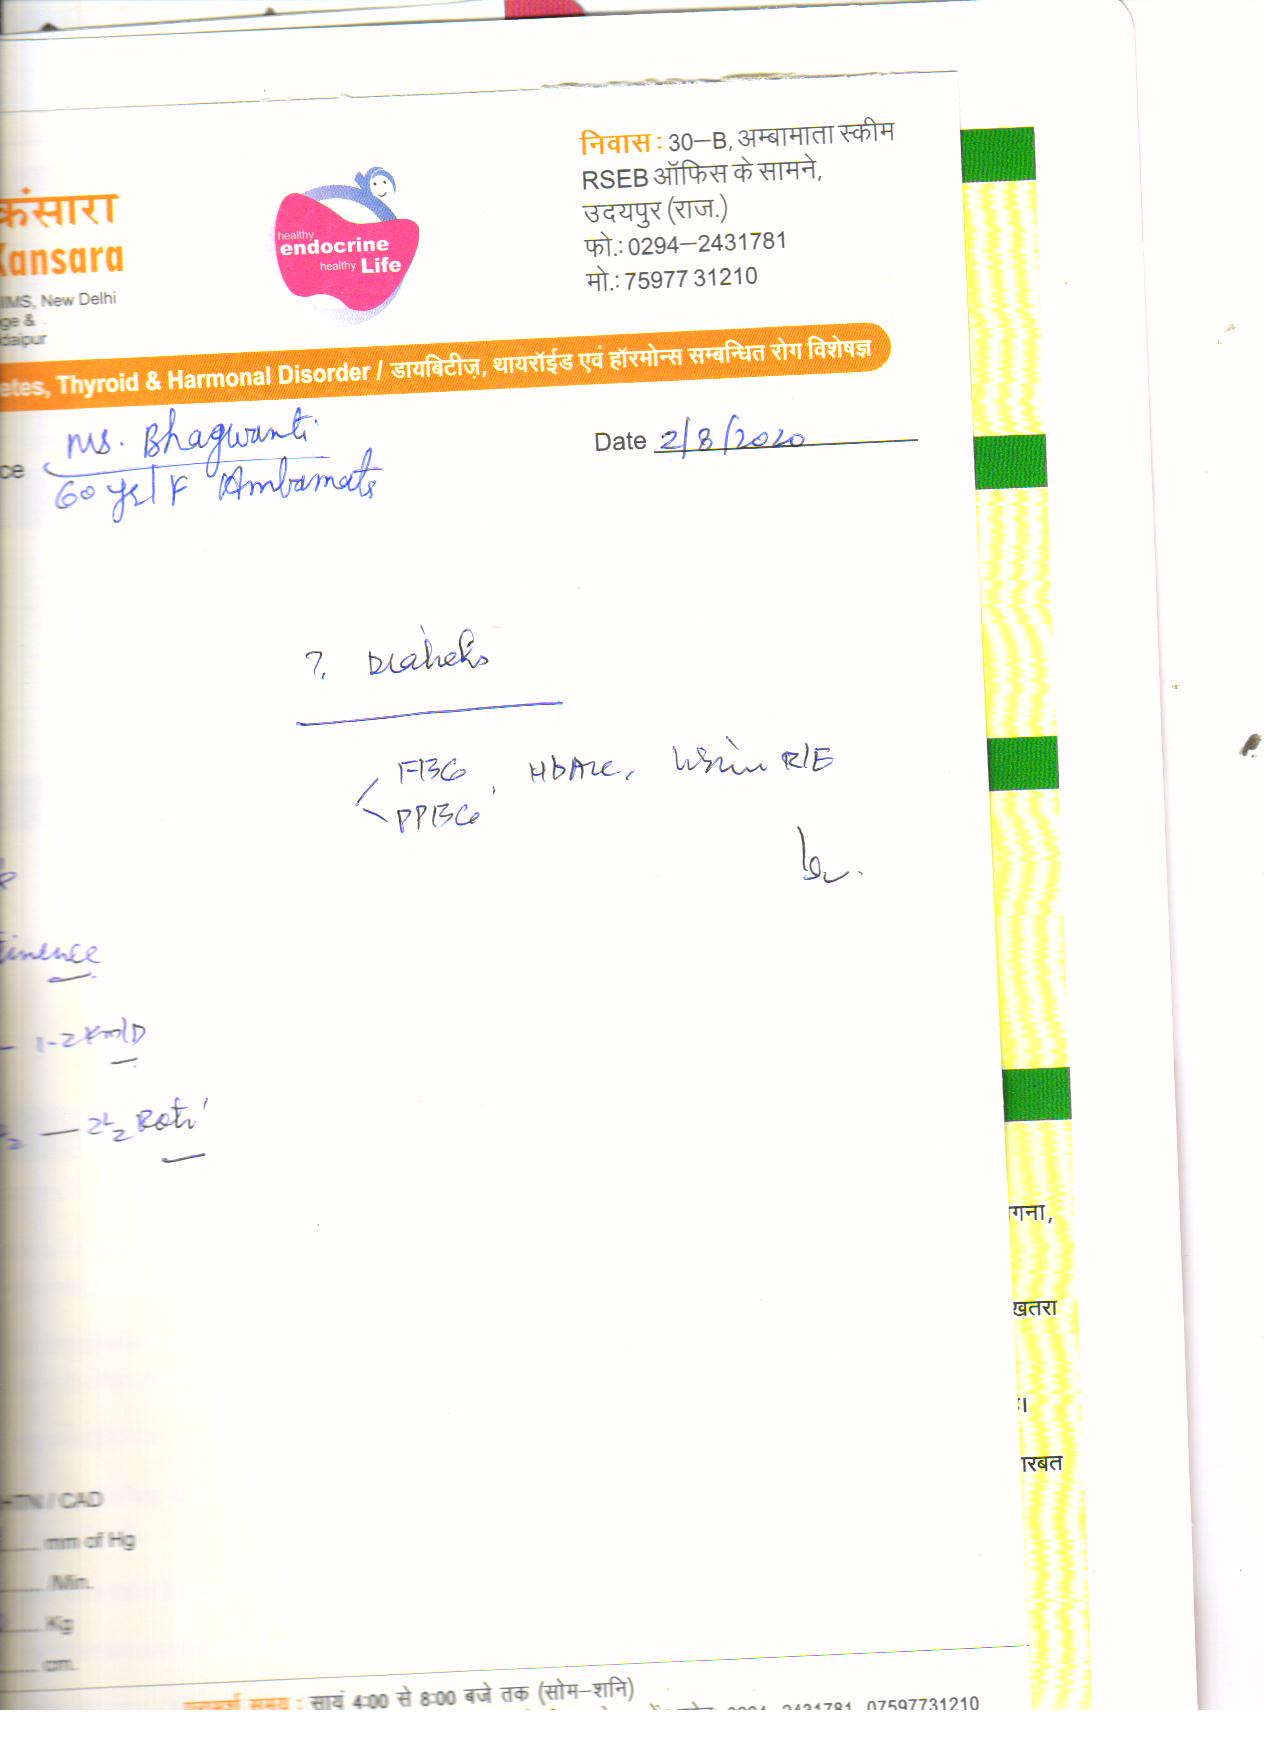 निवास : 30–B, अम्बामाता स्कीम
RSEB ऑफिस के सामने,
उदयपुर (राज.)
फो.: 0294–2431781
मो.: 75977 31210
कंसारा
Kansara
IIMS, New Delhi
ge &
daipur
healthy
endocrine
healthy Life
etes, Thyroid & Harmonal Disorder / डायबिटीज़, थायरॉईड एवं हॉरमोन्स सम्बन्धित रोग विशेषज्ञ
ce Ms. Bhagwanti
Date 2/8/2020
60 yrs/F Ambamata
? Diabetes
FBG, HbA1c, Urine R/E
PPBG
tinence
– 1-2 km/D
— 2 1/2 Roti
गना,
खतरा
ारबत
HTN / CAD
mm of Hg
/Min.
Kg
cm.
परामर्श समय : सायं 4:00 से 8:00 बजे तक (सोम–शनि)
0294–2431781, 07597731210